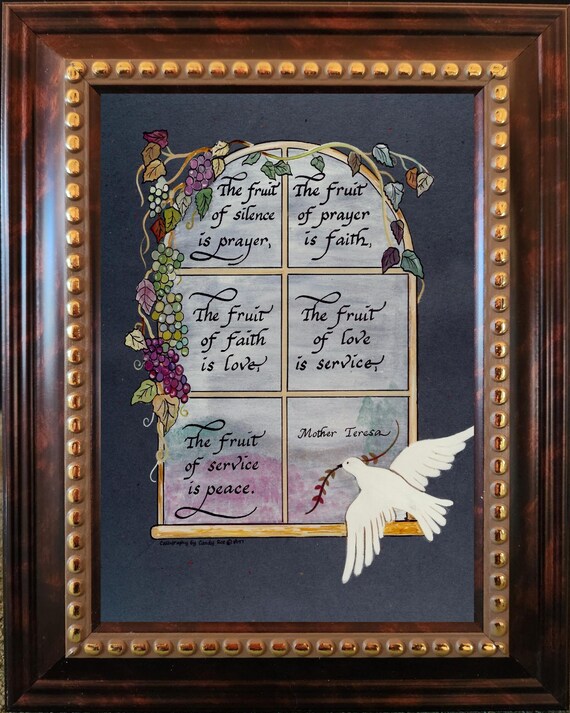 The fruit
of silence
is prayer,
The fruit
of prayer
is faith,
The fruit
of faith
is love,
The fruit
of love
is service,
The fruit
of service
is peace.
Mother Teresa
Calligraphy by